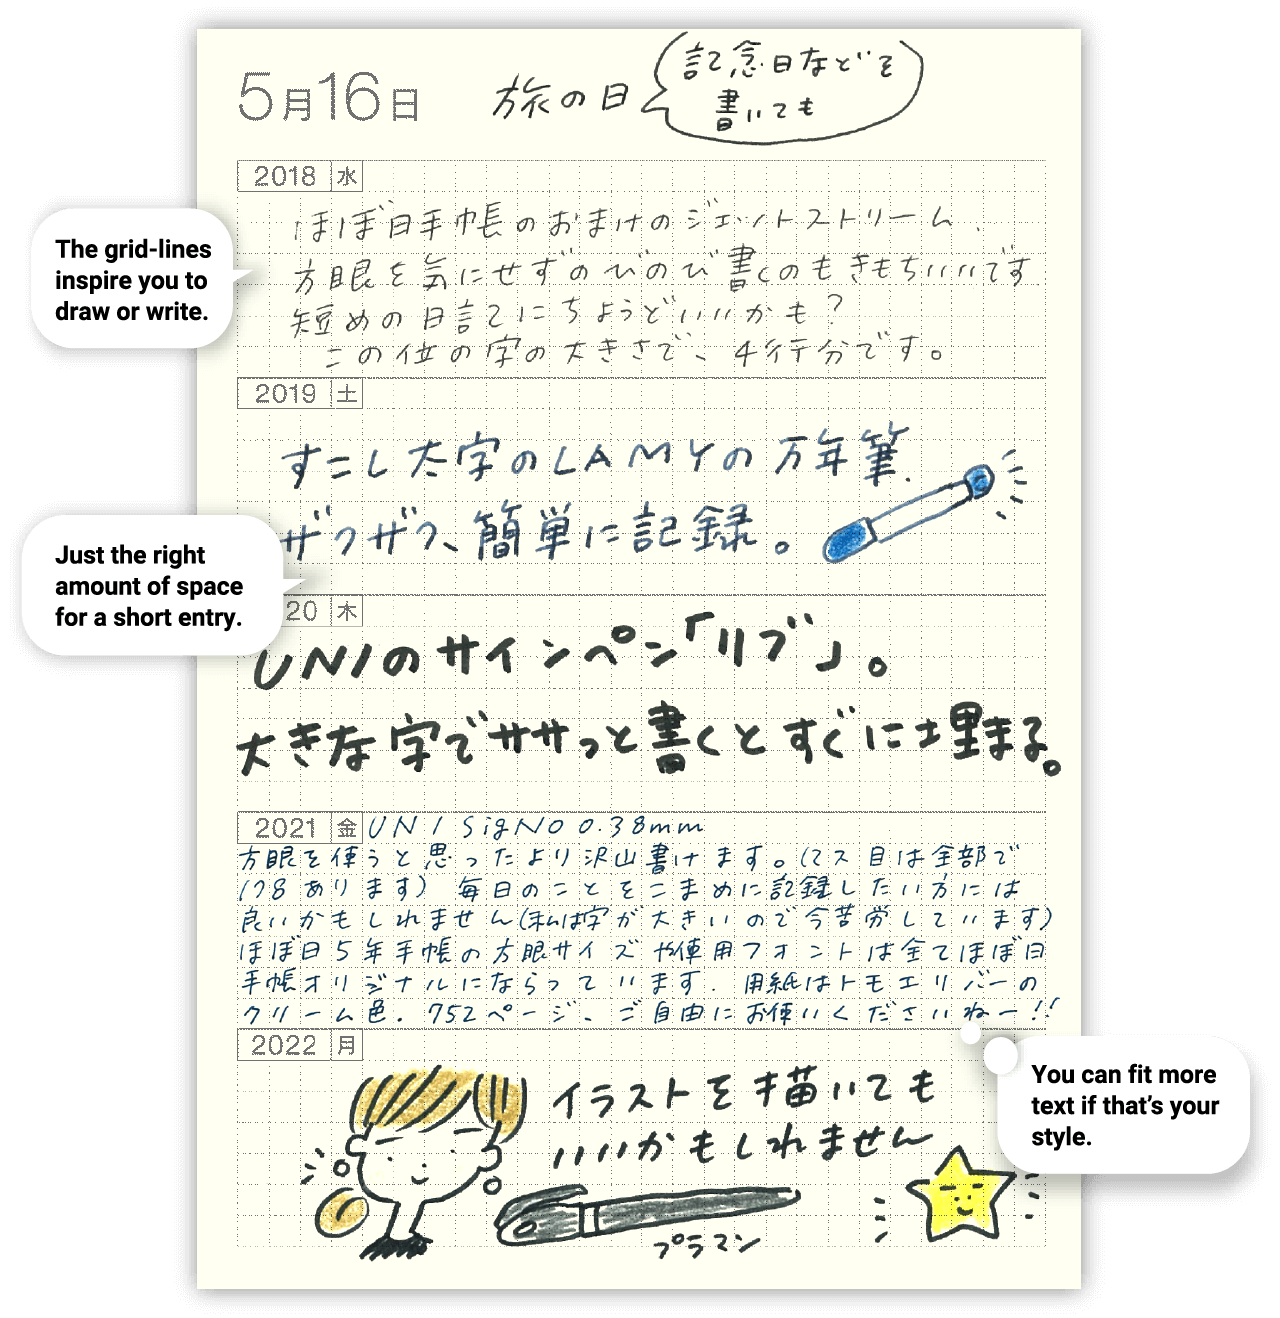 5月16日
旅の日
記念日などを
書いても
2018 水
ほぼ日手帳のおまけのジェットストリーム.
方眼を気にせずのびのび書くのもきもちいいです
短めの日記にちょうどいいかも?
この位の字の大きさで、4行分です。
The grid-lines
inspire you to
draw or write.
2019 土
すこし太字のLAMYの万年筆.
ザクザク、簡単に記録。
Just the right
amount of space
for a short entry.
20 木
UNIのサインペン「リブ」。
大きな字でササッと書くとすぐに埋まる。
2021 金 UNI SigNO 0.38mm
方眼を使うと思ったより沢山書けます。(マス目は全部で
178あります) 毎日のことをこまめに記録したい方には
良いかもしれません(私は字が大きいので今苦労しています)
ほぼ日5年手帳の方眼サイズや使用フォントは全てほぼ日
手帳オリジナルにならっています. 用紙はトモエリバーの
クリーム色. 752ページ、ご自由にお使いくださいねー!!
2022 月
イラストを描いても
いいかもしれません
プラマン
You can fit more
text if that's your
style.